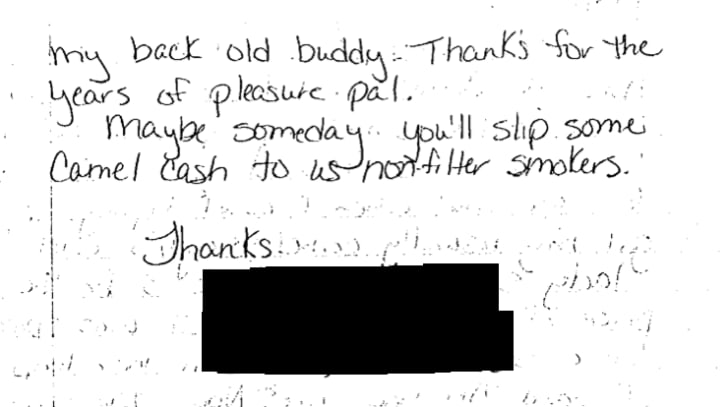 my back old buddy. Thanks for the
years of pleasure pal.
Maybe someday you'll slip some
Camel Cash to us non-filter smokers.
Thanks